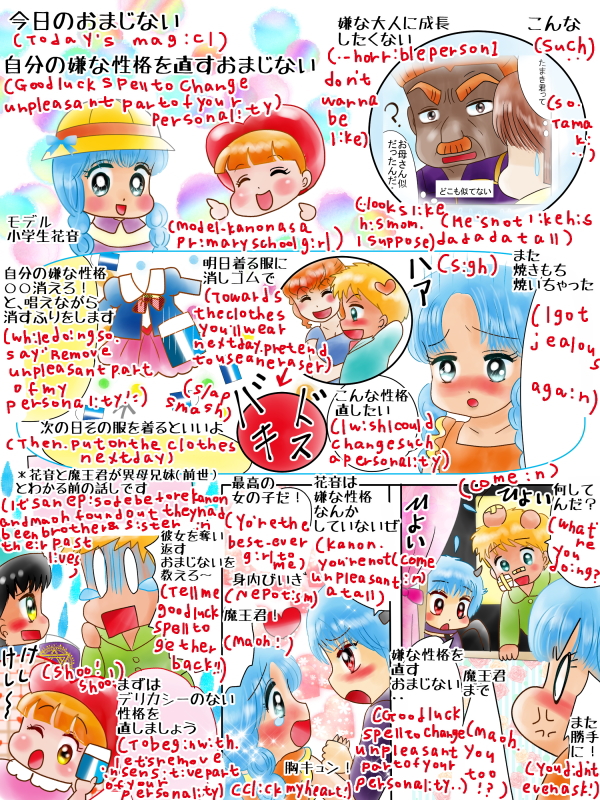 今日のおまじない
(Today's magicl)
自分の嫌な性格を直すおまじない
(Goodluck spell to change
unpleasant part of your
personality)
嫌な大人に成長
したくない
(--horrible person I
don't
wanna
be
like)
こんな
(such)
たまき君って
(so.
Tamak
i..)
?
お母さん似
だったんだ..
どこも似てない
(.looks like
his mom.
I suppose)
(He's not like his
dad at all)
モデル
小学生花音
(model-kanon as a
primary school girl)
自分の嫌な性格
○○消えろ!
と、唱えながら
消すふりをします
(while doing so.
say'remove
unpleasant part
of my
personality!')
明日着る服に
消しゴムで
(Towards
the clothes
you'll wear
next day.pretend
to use an eraser)
また
焼きもち
焼いちゃった
(I got
jealous
again)
ハァ
(sigh)
(slap
smash)
バキ
ドス
こんな性格
直したい
(I wish I could
change such
a personality)
次の日その服を着るといいよ
(Then.put on the clothes
next day)
*花音と魔王君が異母兄妹(前世)
とわかる前の話しです
(it's an episode before kanon
and maoh found out they had
been brother & sister in
their past
lives)
彼女を奪い
返す
おまじないを
教えろ〜
(Tell me
good luck
spell to
get her
back!!)
けしけし〜
(Shoo!
shoo!)
まずは
デリカシーのない
性格を
直しましょう
(To begin with.
let's remove
insensitive part
of your
personality)
最高の
女の子だ!
(You're the
best-ever
girl to
me)
花音は
嫌な性格
なんか
していないぜ
(kanon.
you're not
unpleasant
at all)
身内びいき
(Nepotism)
魔王君!
(Maoh!)
胸キュン!
(Click my heart!)
(come in)
ひょい
何してんだ?
(what're
you
doing?)
ひょい
(come
in)
嫌な性格を
直す
おまじない
..
(Good luck
spell to change
unpleasant
part of your
personality..)
魔王君
まで
(Maoh.
You
too
!?)
また勝手
に!
(You didn't
even ask!)